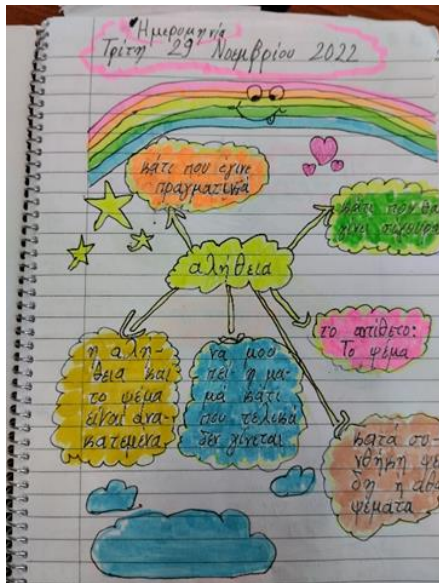 Ημερομηνία
Τρίτη 29 Νοεμβρίου 2022
κάτι που έγινε
πραγματικά
κάτι που θα
γίνει
αλήθεια
το αντίθετο:
Το ψέμα
η αλή-
θεια και
το ψέμα
είναι ανα-
κατεμένα
να μου
πει η μα-
μά κάτι
που τελικά
δεν γίνεται
κατά συ-
νθήκη
ψέματα